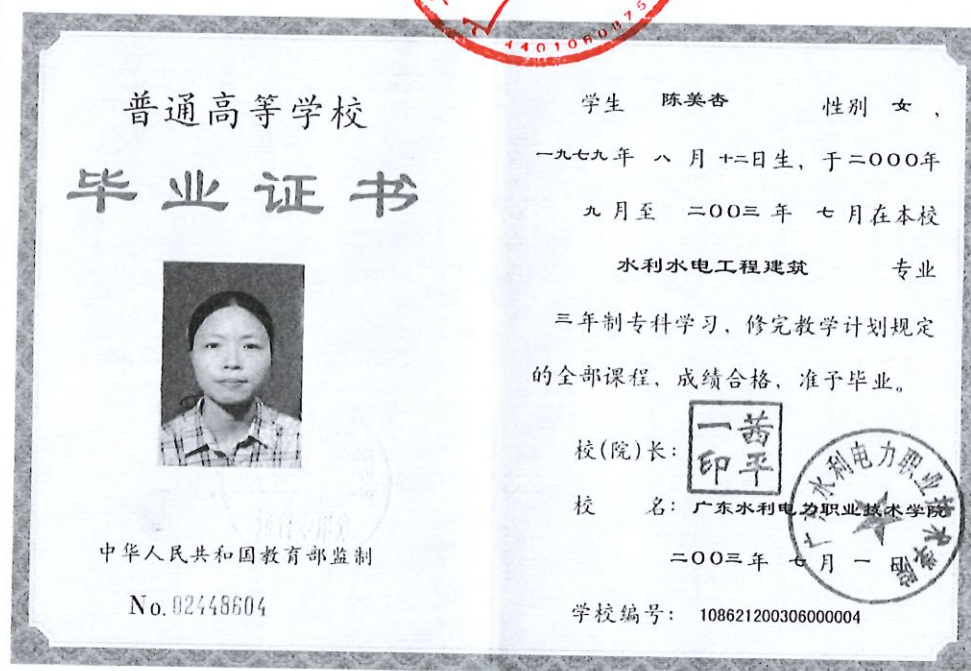 4401060875
普通高等学校
毕业证书
中华人民共和国教育部监制
No. 02448604
学生 陈美杏 性别 女,
一九七九年 八 月 十二日生, 于二〇〇〇年
九 月至 二〇〇三 年 七 月在本校
水利水电工程建筑 专业
三年制专科学习、修完教学计划规定
的全部课程、成绩合格、准予毕业。
校(院)长: 茜平一印
校 名: 广东水利电力职业技术学院
二〇〇三 年 七 月 一 日
学校编号: 108621200306000004
广东水利电力职业技术学院